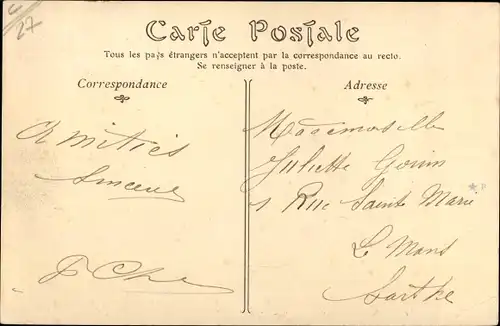 C
27
Carte Postale
Tous les pays étrangers n'acceptent par la correspondance au recto.
Se renseigner à la poste.
Correspondance
Amitiés
Sincère
Adresse
Mademoiselle
Juliette Gouin
1 Rue Sainte Marie
Le Mans
Sarthe